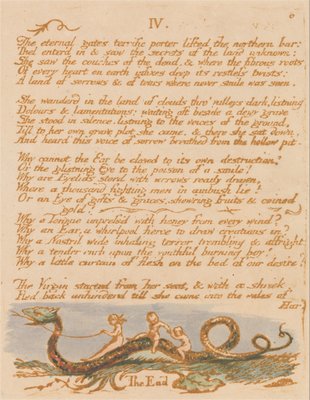 IV.
6
The eternal gates terrific porter lifted the northern bar:
Thel enter'd in & saw the secrets of the land unknown;
She saw the couches of the dead, & where the fibrous roots
Of every heart on earth infixes deep its restless twists:
A land of sorrows & of tears where never smile was seen.
She wanderd in the land of clouds thro' valleys dark, listning
Dolours & lamentations: waiting oft beside a dewy grave
She stood in silence, listning to the voices of the ground,
Till to her own grave plot she came, & there she sat down.
And heard this voice of sorrow breathed from the hollow pit.
Why cannot the Ear be closed to its own destruction?
Or the glistning Eye to the poison of a smile!
Why are Eyelids stord with arrows ready drawn,
Where a thousand fighting men in ambush lie?
Or an Eye of gifts & graces, show'ring fruits & coined
gold!
Why a Tongue impress'd with honey from every wind?
Why an Ear, a whirlpool fierce to draw creations in?
Why a Nostril wide inhaling terror trembling & affright
Why a tender curb upon the youthful burning boy!
Why a little curtain of flesh on the bed of our desire?
The Virgin started from her seat, & with a shriek
Fled back unhinderd till she came into the vales of
Har
The End